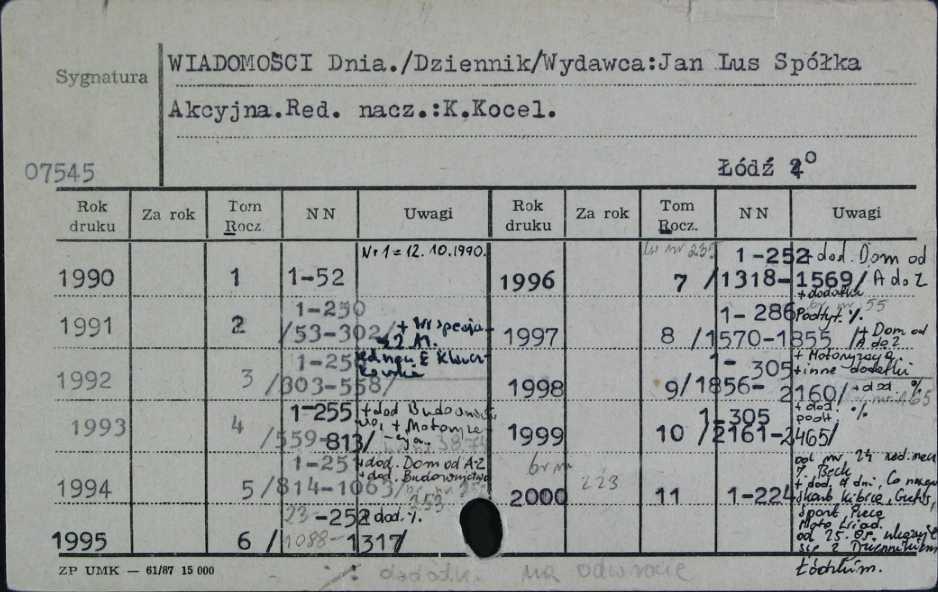 WIADOMOŚCI Dnia./Dziennik/Wydawca:Jan Lus Spółka
Sygnatura
Akcyjna.Red. nacz.:K.Kocel.
07545
Łódź 2°
Rok druku Za rok Tom Rocz. NN Uwagi Rok druku Za rok Tom Rocz. NN Uwagi
1990 1 1-52 Nr 1 = 12.10.1990.
1991 2 1-250 /53-302/
1992 3 /303-558/
1993 4 1-255 /559-813/ + dod Budownictwo
1994 5 /814-1063/ + dod. Dom od A-Z + dod. Budownictwo
1995 6 23-252 /1088-1317/ + dod. %
1996 7 1-252 /1318-1569/ + dod. Dom od A do Z
1997 8 1-286 /1570-1855 /+ Dom od A do Z
1998 9 1-305 /1856-2160/ + Motoryzacja + inne dodatki + dod %
1999 10 1-305 /2161-2465/ + dod. %
2000 223 11 1-224 od nr 24 red. nacz. Beck
Sport,
od 25.09. ukazuje się z Dziennikiem Łódzkim.
ZP UMK — 61/87 15 000
%. dodatk. na odwrocie